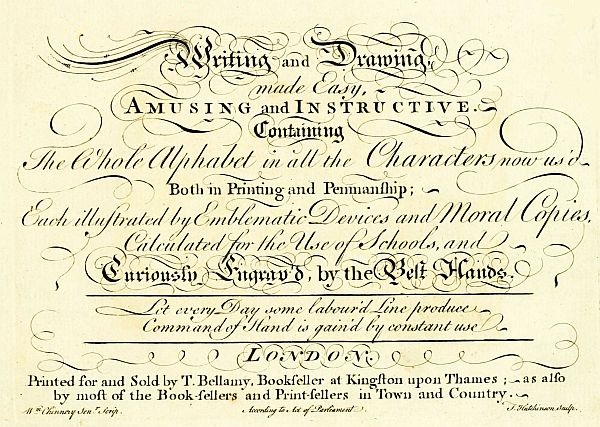 Writing and Drawing,
made Easy,
AMUSING and INSTRUCTIVE.
Containing
The Whole Alphabet in all the Characters now us'd
Both in Printing and Penmanſhip;
Each illustrated by Emblematic Devices and Moral Copies.
Calculated for the Use of Schools, and
Curiously Engrav'd, by the Beſt Hands.
Let every Day some labour'd Line produce
Command of Hand is gain'd by constant use
LONDON:
Printed for and Sold by T. Bellamy, Bookſeller at Kingſton upon Thames; as alſo
by moſt of the Book-ſellers and Print-ſellers in Town and Country.
Wm. Chinnery Senr. Scrip. According to Act of Parliament. J. Hutchinson Sculp.